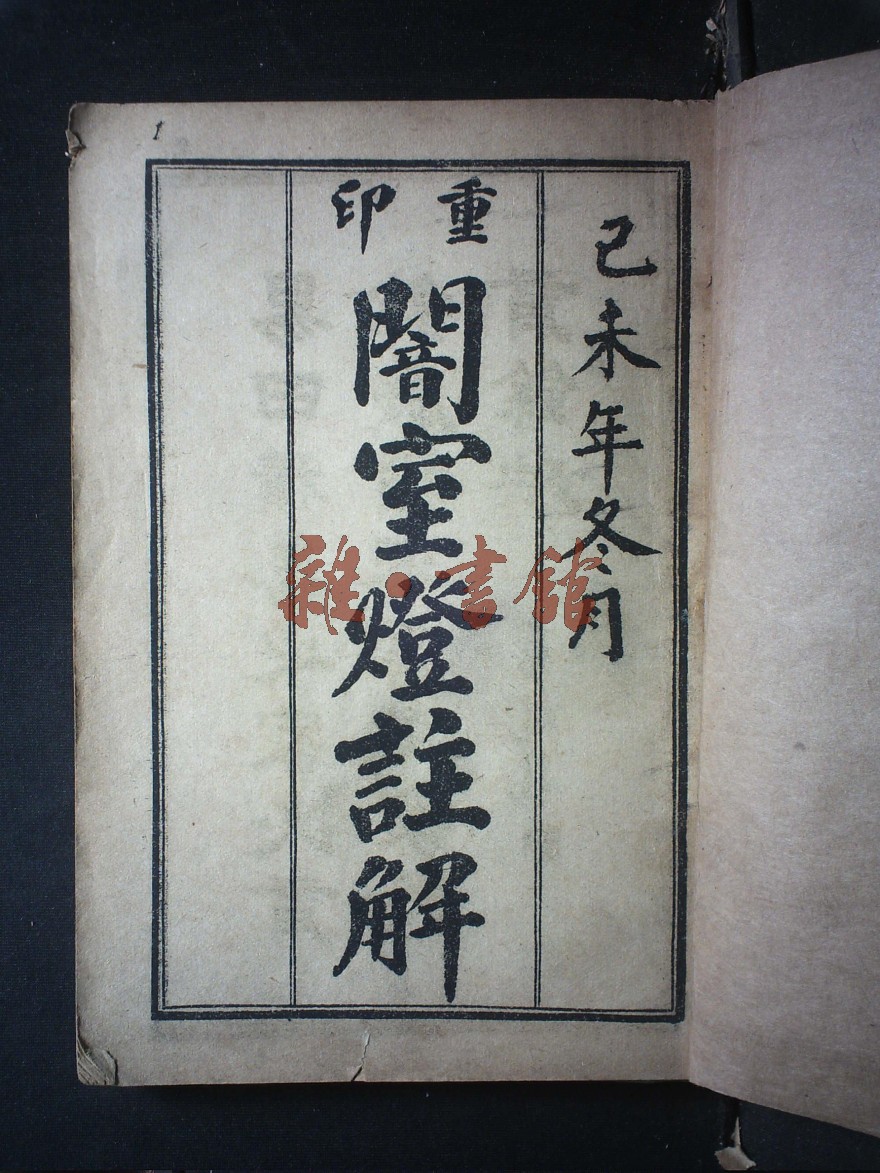 己未年冬月
重印
闇室燈註解
雜·書館